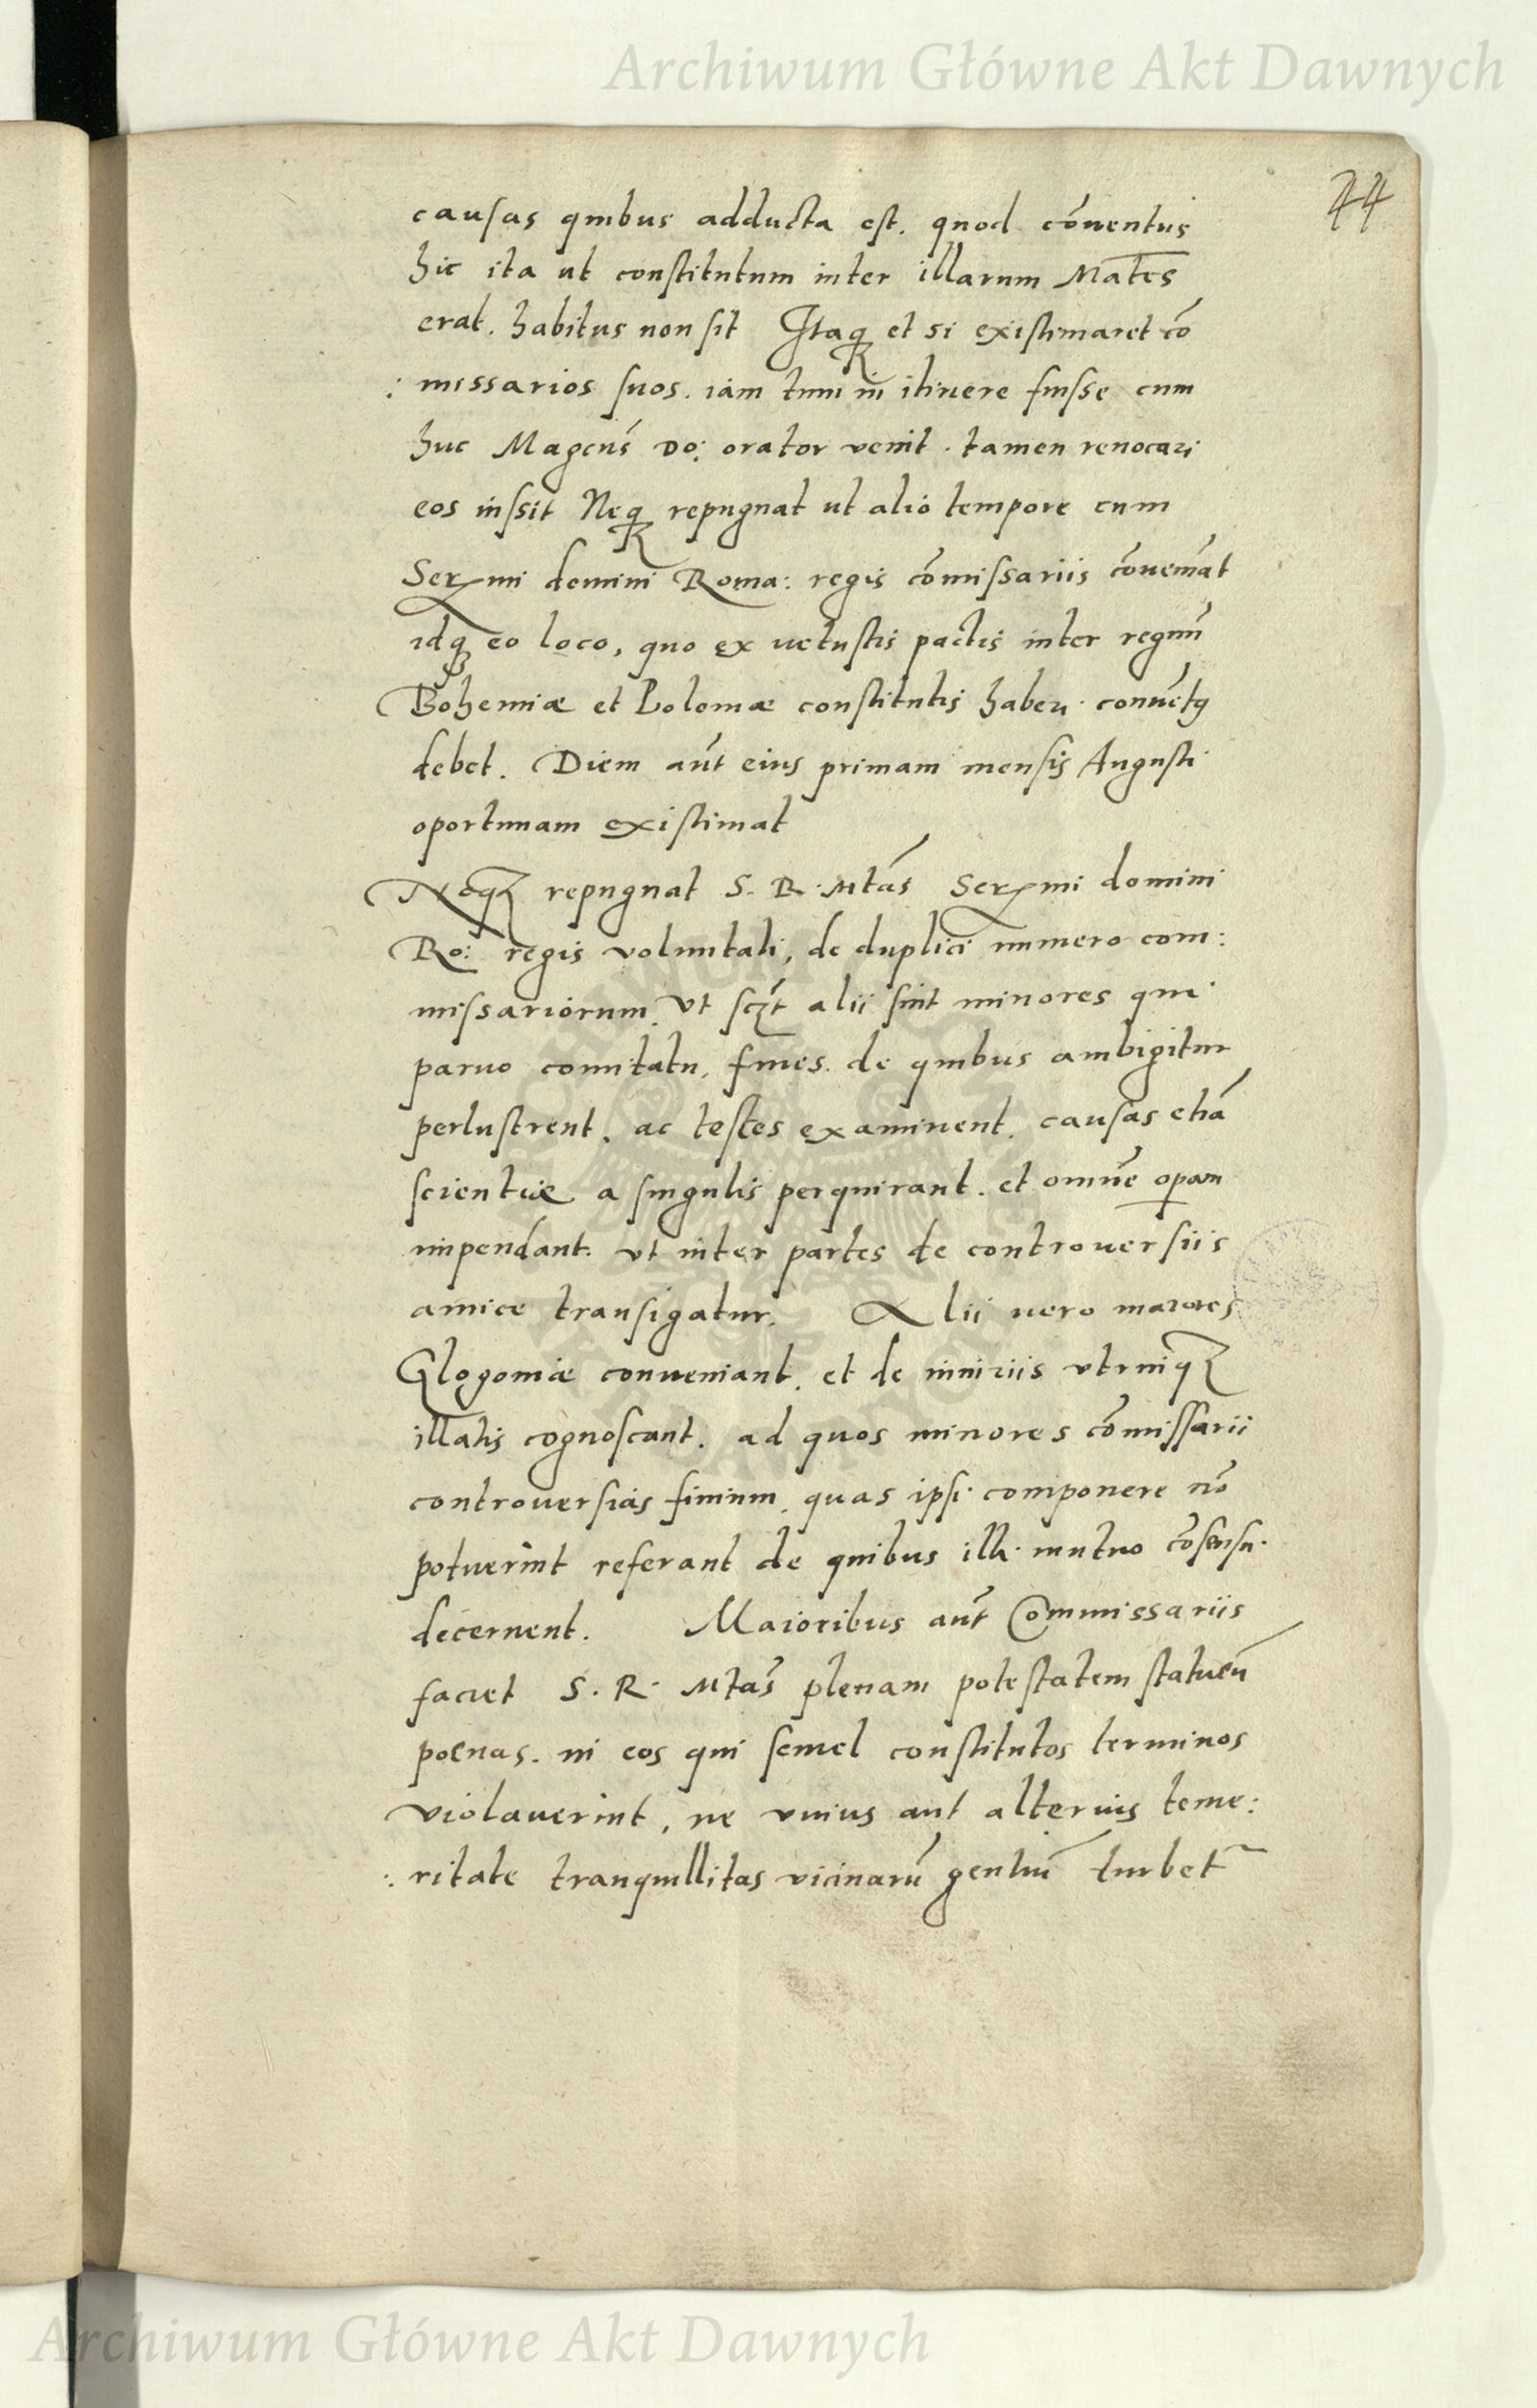 Archiwum Główne Akt Dawnych
44
causas quibus adducta est. quod cōuentus
hic ita ut constitutum inter illarum Mātes
erat. habitus non sit Itaq₃ et si existimaret cō
: missarios suos. iam tum in itinere fuisse cum
huc Magcūs Do: orator venit. tamen reuocari
eos iussit Neq₃ repugnat ut alio tempore cum
Serꝫmi domini Roma: regis cōmissariis cōueniāt
idq₃ eo loco, quo ex uetustis pactis inter regnū
Bohemiæ et Poloniæ constitutis haberi conuētꝰ
debet. Diem aūt eius primam mensis Augusti
oportunam existimat
Neq₃ repugnat S. R. Mtās Serꝫmi domini
Ro: regis voluntati, de duplici numero com:
missariorum, Vt scꝫt alii sint minores qui
paruo comitatu, fines. de quibus ambigitur
perlustrent, ac testes examinent, causas etiā
scientiæ a singulis perquirant. et omnē operam
impendant. vt inter partes de controuersiis
amice transigatur. Alii uero maiores
Glogouiæ conueniant, et de iniuriis vtrinq₃
illatis cognoscant. ad quos minores cōmissarii
controuersias finium, quas ipsi componere nō
potuerint referant de quibus illi mutuo cōsensu
decernent. Maioribus aūt Commissariis
faciet S. R. Mtās plenam potestatem statuēdi
poenas. in eos qui semel constitutos terminos
violauerint, ne vnius aut alterius teme:
: ritate tranquillitas vicinarū gentiū turbet~
Archiwum Główne Akt Dawnych